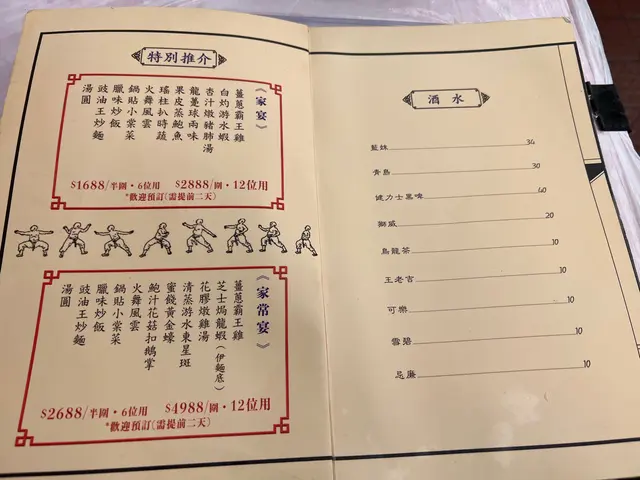 特別推介
《家宴》
薑蔥霸王雞
白灼游水蝦
杏汁燉豬肺湯
龍躉球兩味
果皮蒸鮑魚
瑤柱扒時蔬
火舞風雲
鍋貼小棠菜
臘味炒飯
豉油王炒麵
湯圓
$1688/半圍・6位用 $2888/圍・12位用
*歡迎預訂(需提前二天)
《家常宴》
薑蔥霸王雞
芝士焗龍蝦(伊麵底)
花膠燉雞湯
清蒸游水東星斑
蜜餞黃金蠔
鮑汁花菇扣鵝掌
火舞風雲
鍋貼小棠菜
臘味炒飯
豉油王炒麵
湯圓
$2688/半圍・6位用 $4988/圍・12位用
*歡迎預訂(需提前二天)
酒水
藍妹 34
青島 30
健力士黑啤 40
獅威 20
烏龍茶 10
王老吉 10
可樂 10
雪碧 10
忌廉 10